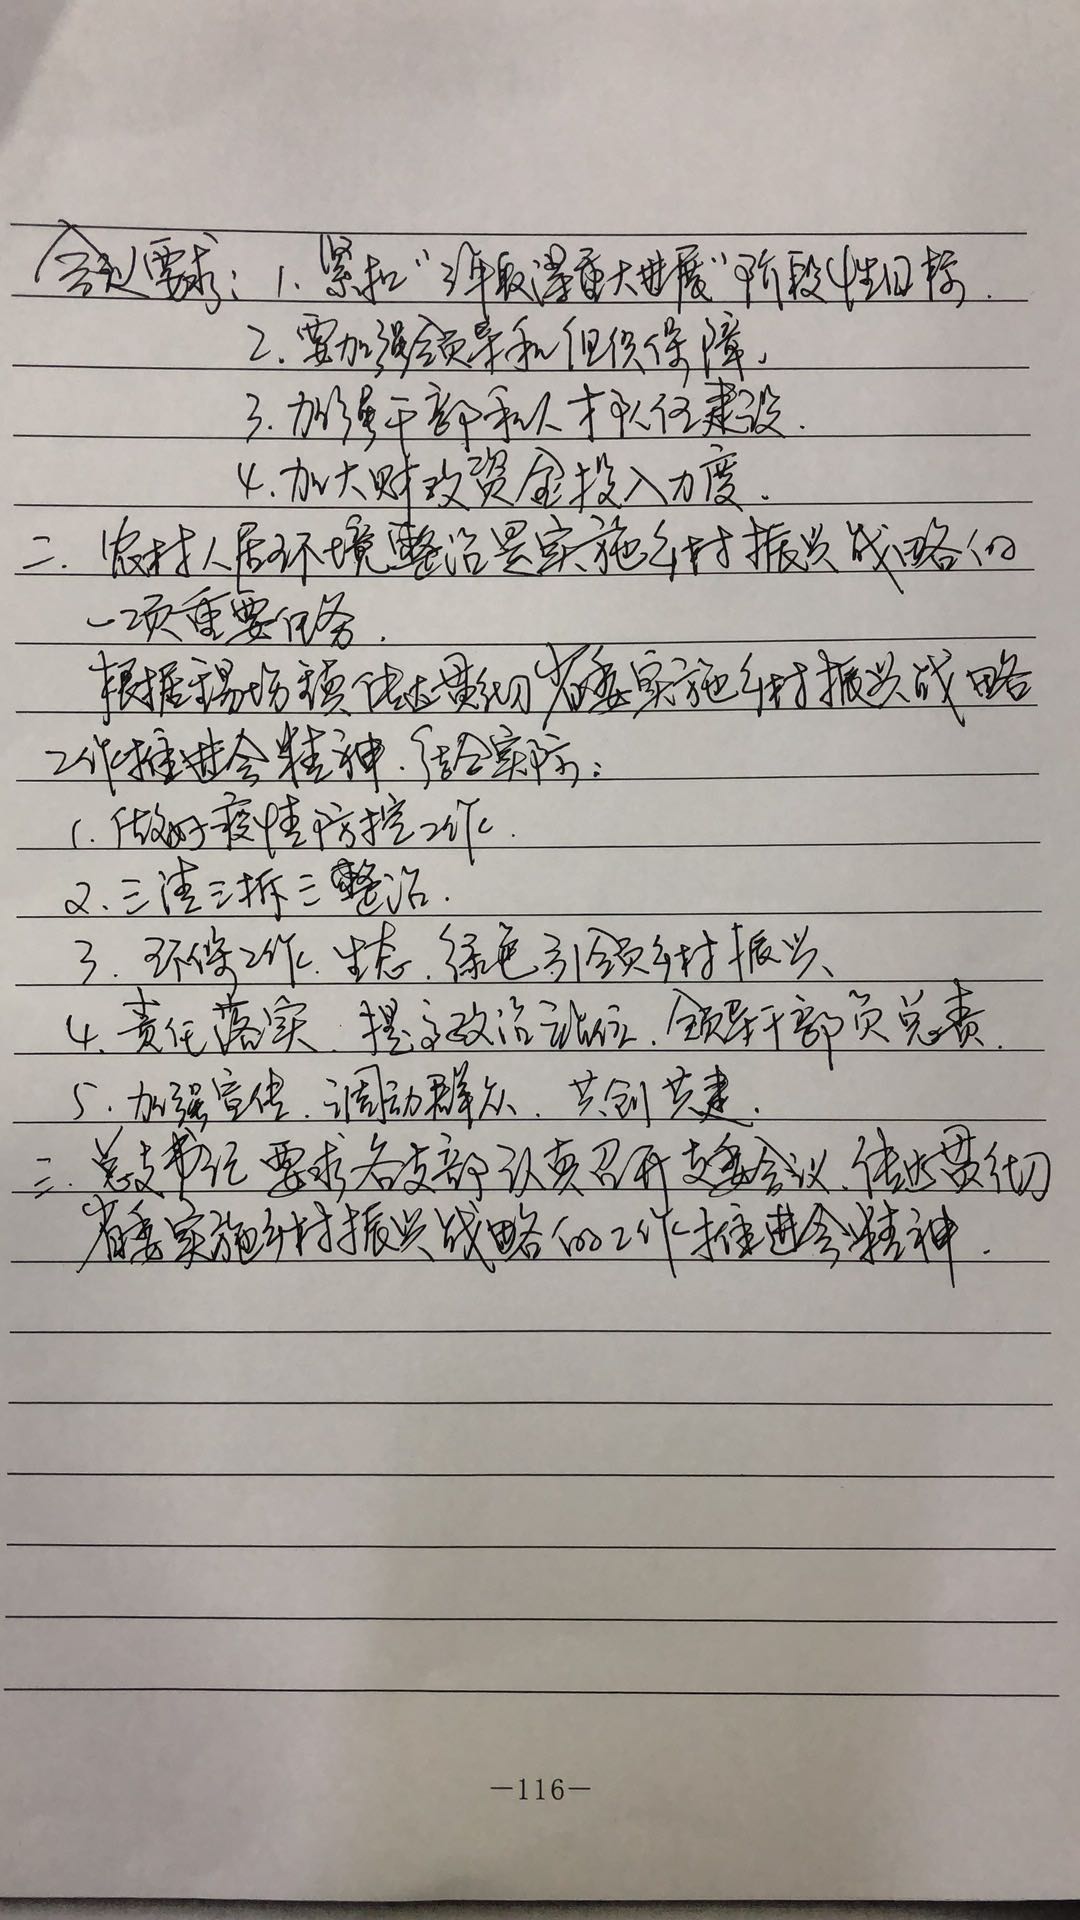 会议要求：1. 紧扣“3年取得重大进展”阶段性目标.
2. 要加强领导和组织保障.
3. 加强干部和人才队伍建设.
4. 加大财政资金投入力度.
二. 农村人居环境整治是实施乡村振兴战略的
一项重要任务.
根据锡场镇传达贯彻省委实施乡村振兴战略
工作推进会精神. 结合实际：
1. 做好疫情防控工作.
2. 三清三拆三整治.
3. 环保工作. 生态. 绿色引领乡村振兴、
4. 责任落实. 提高政治站位. 领导干部负总责.
5. 加强宣传. 调动群众. 共创共建.
三. 总支书记要求各支部认真召开支委会议、传达贯彻
省委实施乡村振兴战略的工作推进会精神.
—116—